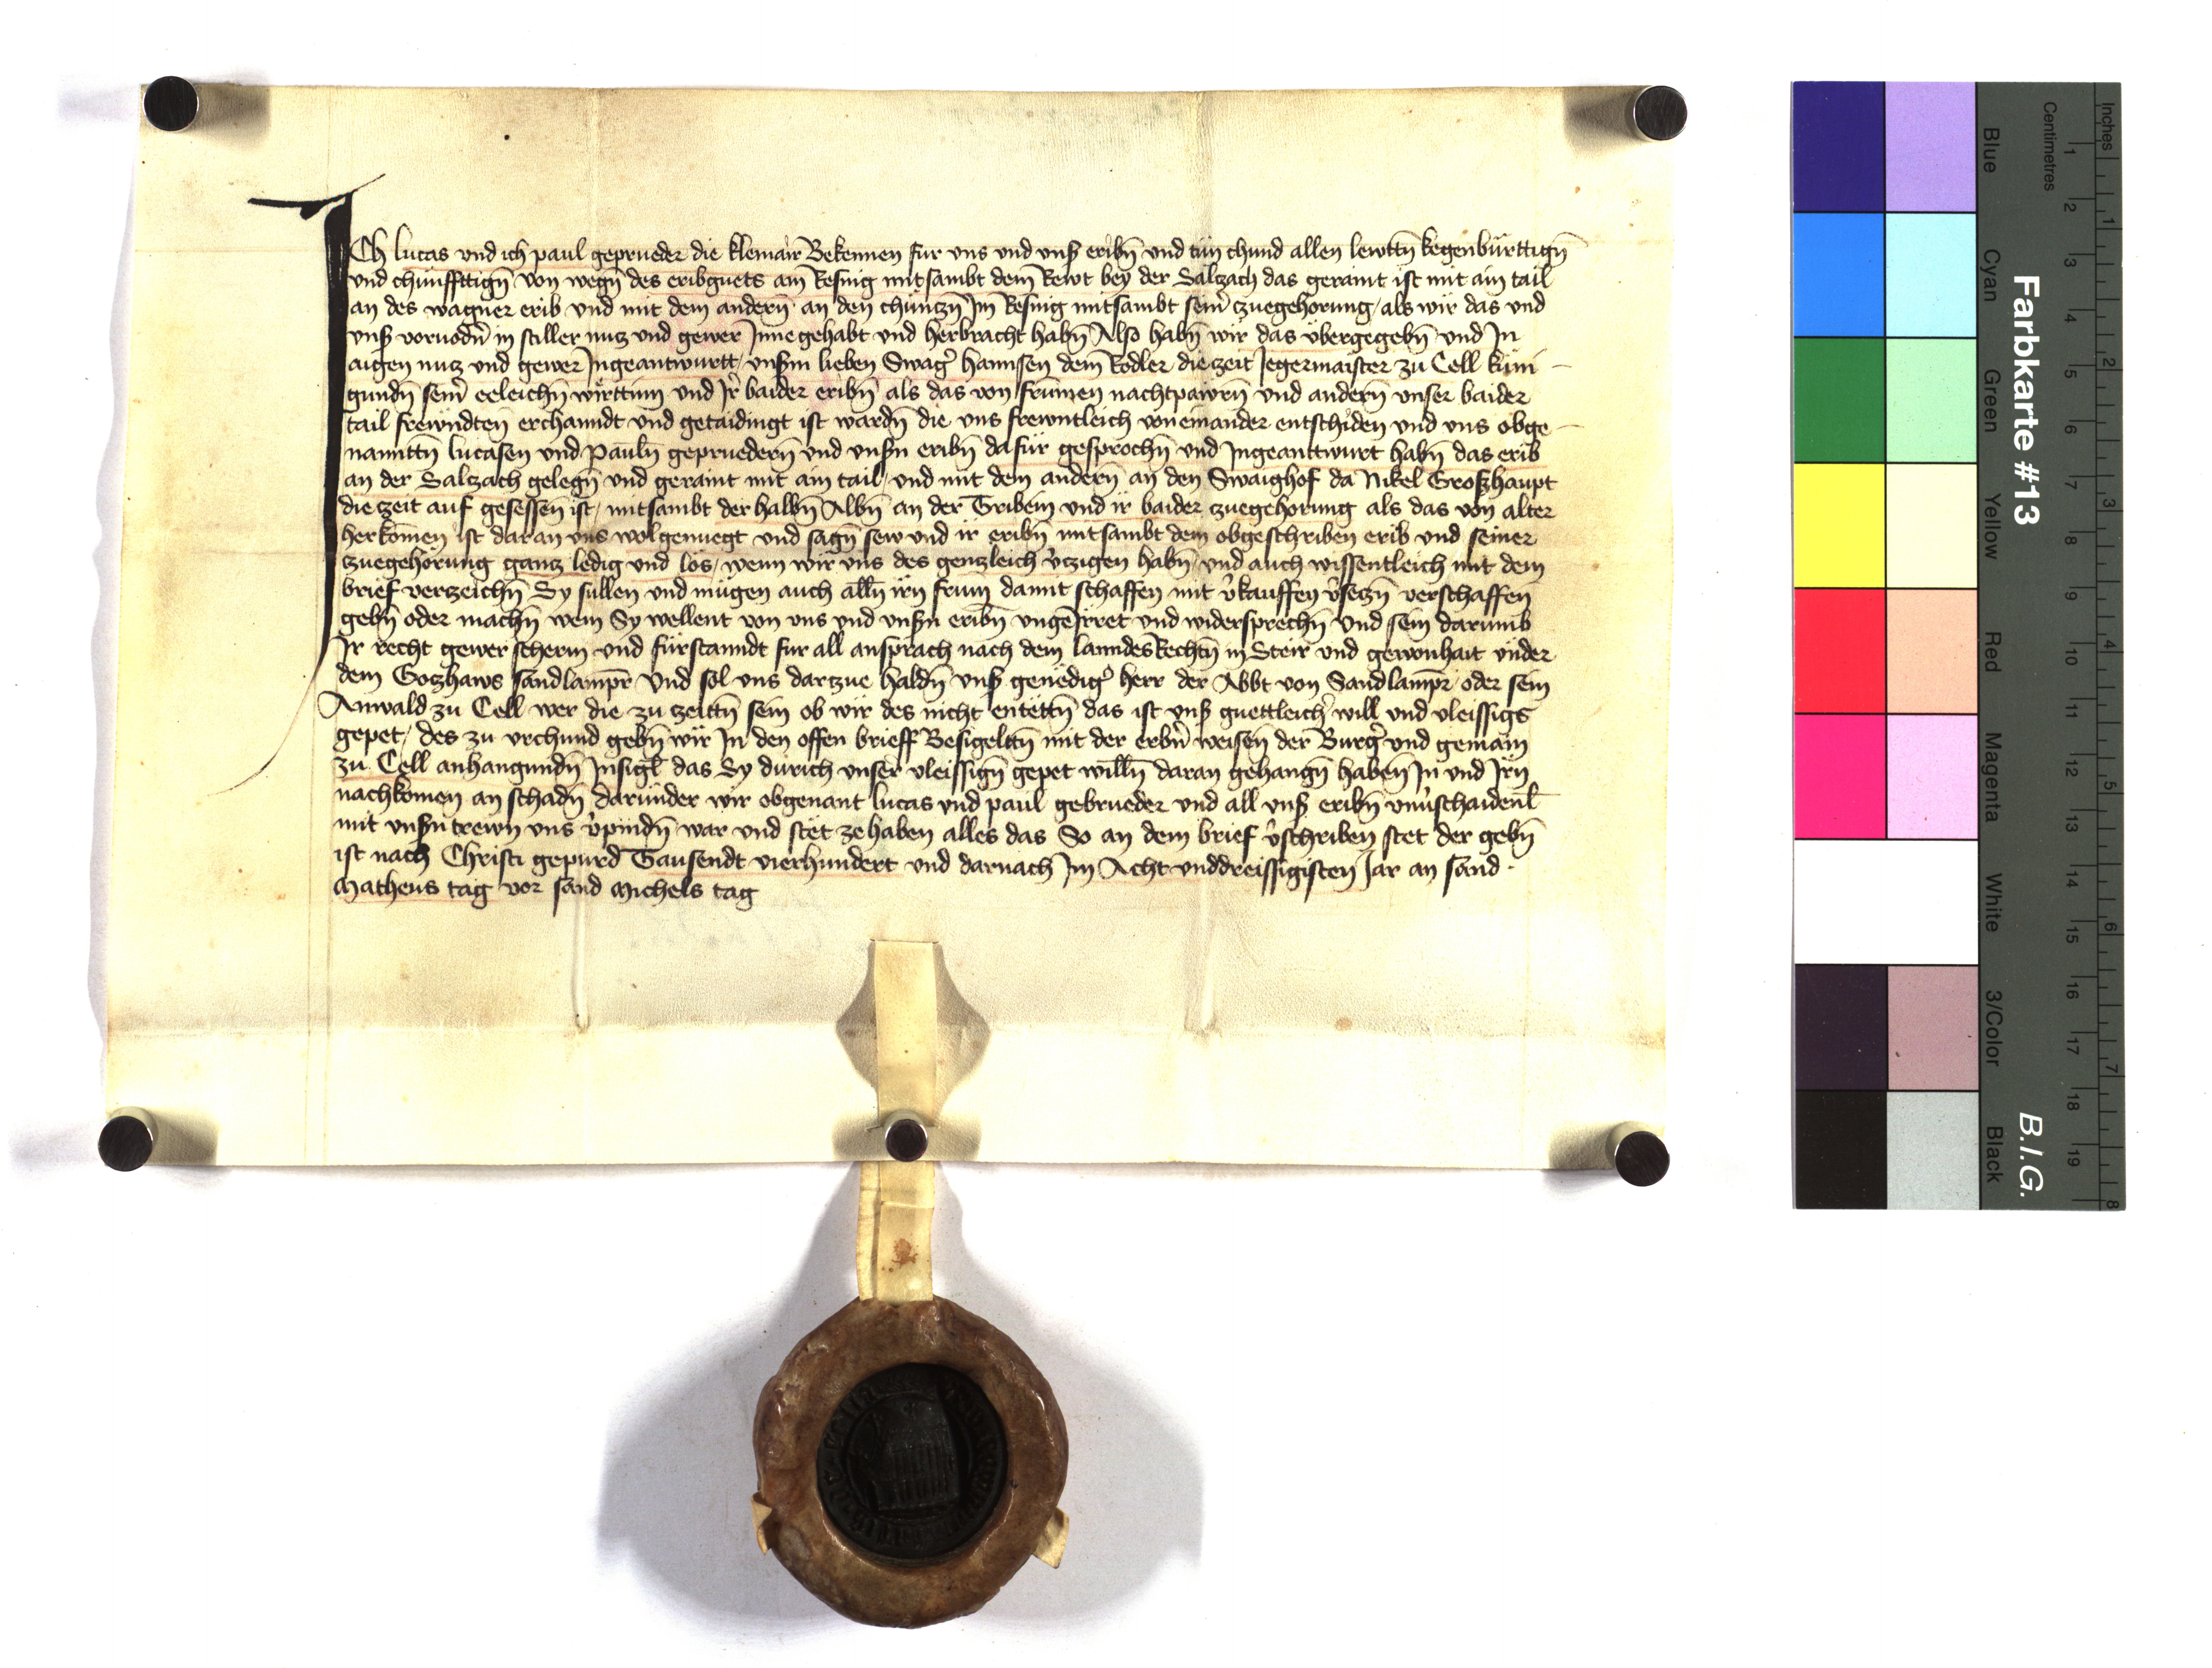 Ich lucas vnd ich paul geprueder die klemair Bekennen fur vns vnd vnsß eribn̄ vnd tun chund allen lewttn̄ kegenbürttign̄
vnd chünffttign̄ von wegn̄ des eribguets am Resnig mitsambt dem Rewt bey der Salzach das geraint ist mit aim tail
an des wagner erib vnd mit dem andern̄ an den chünczn̄ Im Resnig mitsambt sein̄ zuegehorung / als wir das vnd
vnsß voruodn̄ in stiller nucz vnd gewer Inne gehabt vnd herbracht habn̄ Also habn̄ wir das übergegebn̄ vnd In
aigen nucz vnd gewer Ingeantwurtt / vnsßm lieben Swag̉ hannsen dem Rodler die zeit Jegermaister zu Cell küni-
gundn̄ sein̉ eeleichn̄ wirttinn vnd Ir̉ baider eribn̄ als das von frumen nachtpawrn̄ vnd andern̄ vnser baider
tail frewndten erchanndt vnd getaidingt ist wardn̄ die vns frewntleich von einander entschiden vnd vns obge-
nanttn̄ lucasen vnd Pauln̄ gepruedern̄ vnd vnsßn eribn̄ dafür gesprochn̄ vnd Ingeanttwurt habn̄ das erib
an der Salczach gelegn̄ vnd geraint mit aim tail / vnd mit dem andern̄ an den Swaighof da Nikel Groszhaupt
die zeit auf gesessen̄ ist / mitsambt der halbn̄ Albn̄ an der Gribein vnd ir baider zuegehorung als das von alter
herkomen ist daran vns wolgenuegt vnd sagn̄ sew vnd ir eribn̄ mitsambt dem obgeschriben erib vnd seiner
zuegehörung gancz ledig vnd los / wenn wir vns des genczleich v̉czigen habn̄ / vnd auch wissentleich mit dem
brief verczeichn̄ Sy sullen vnd mügen auch alln̄ irn̄ frum damit schaffen mit v̉kauffen v̉seczn̄ verschaffen
gebn̄ oder machn̄ wem Sy wellent von vns vnd vnsßn eribn̄ vngeirret vnd widersprechn̄ vnd sein darumb
Ir recht gewer scherm vnd fürstanndt fur all ansprach nach dem lanndes Rechtn̄ in Steir vnd gewonhait vnder
dem Goczhaws sandlampr̄ vnd sol vns darczue haldn̄ vnsß genedig̉ herr der Abbt von Sandlampr̄ / oder sein
Anwald zu Cell wer die zu zeittn̄ sein ob wir des nicht entettn̄ das ist vnsß guettleich̉ will vnd vleissigs
gepet / des zu vrchund gebn̄ wir In den offen brieff Besigelttn̄ mit der erbn̉ weisen der Burg̉ vnd gemain
zu Cell anhangundn̄ Insigl̄ das Sy durich vnser vleissign̄ gepet willn̄ daran gehangn̄ haben̄ In vnd Irn̄
nachkomen an schadn̄ daründer wir obgenant lucas vnd paul gebrueder vnd all vnsß eribn̄ vnu̇schaidenl̄
mit vnsßn trewn vns v̉pindn̄ war vnd stet ze haben alles das So an dem brief v̉schriben stet der gebn̄
ist nach Christi gepurd Tausendt vierhundert vnd darnach Im Acht vnddreissigisten Jar an sand
Matheus tag vor sand Michels tag
Farbkarte #13
B.I.G.
Inches
Centimetres
1 2 3 4 5 6 7 8 9 10 11 12 13 14 15 16 17 18 19
1 2 3 4 5 6 7 8
Blue
Cyan
Green
Yellow
Red
Magenta
White
3/Color
Black